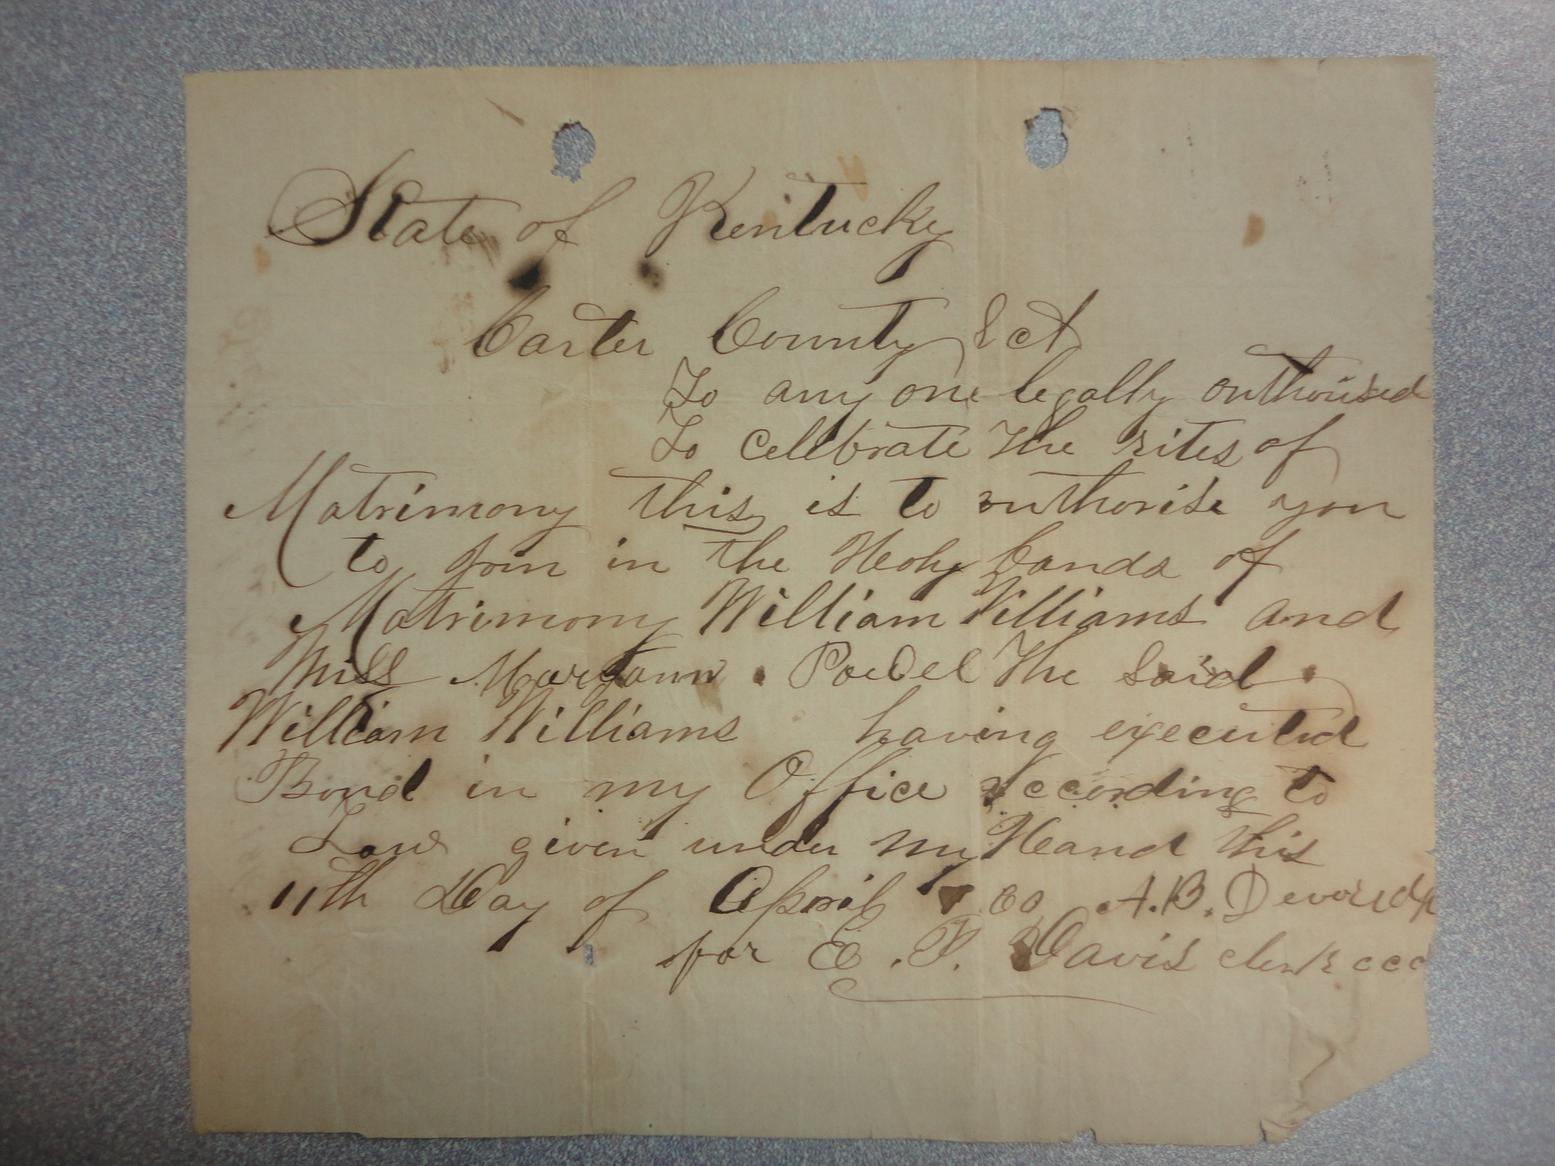 State of Kentucky
Carter County Sct
To any one legally authorised
To celebrate the rites of
Matrimony this is to authorise you
to join in the Holy bands of
Matrimony William Williams and
Miss The said
William Williams having executed
Bond in my Office according to
Law given under my Hand this
11th Day of April 60 A.B.
for E. F. Davis clerk ccc